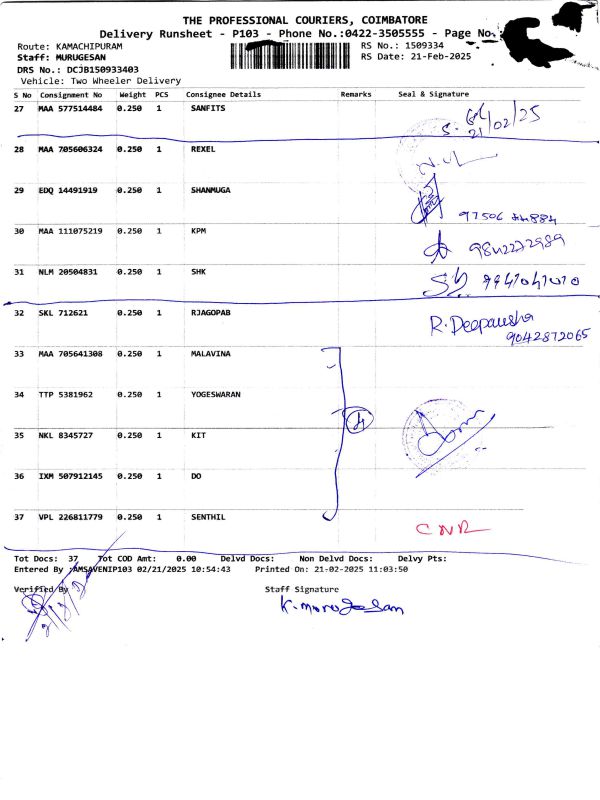 THE PROFESSIONAL COURIERS, COIMBATORE
Delivery Runsheet - P103 - Phone No.:0422-3505555 - Page No.
Route: KAMACHIPURAM RS No.: 1509334
Staff: MURUGESAN RS Date: 21-Feb-2025
DRS No.: DCJB150933403
Vehicle: Two Wheeler Delivery
S No Consignment No Weight PCS Consignee Details Remarks Seal & Signature
27 MAA 577514484 0.250 1 SANFITS
21/02/25
28 MAA 705606324 0.250 1 REXEL
29 EDQ 14491919 0.250 1 SHANMUGA
97506
30 MAA 111075219 0.250 1 KPM
9842272989
31 NLM 20504831 0.250 1 SHK
9947041070
32 SKL 712621 0.250 1 RJAGOPAB R. Deepausha
9042872065
33 MAA 705641308 0.250 1 MALAVINA
34 TTP 5381962 0.250 1 YOGESWARAN
35 NKL 8345727 0.250 1 KIT
36 IXM 507912145 0.250 1 DO
37 VPL 226811779 0.250 1 SENTHIL CNR
Tot Docs: 37 Tot COD Amt: 0.00 Delvd Docs: Non Delvd Docs: Delvy Pts:
Entered By :AMSAVENIP103 02/21/2025 10:54:43 Printed On: 21-02-2025 11:03:50
Verified By Staff Signature
K. Murugesan